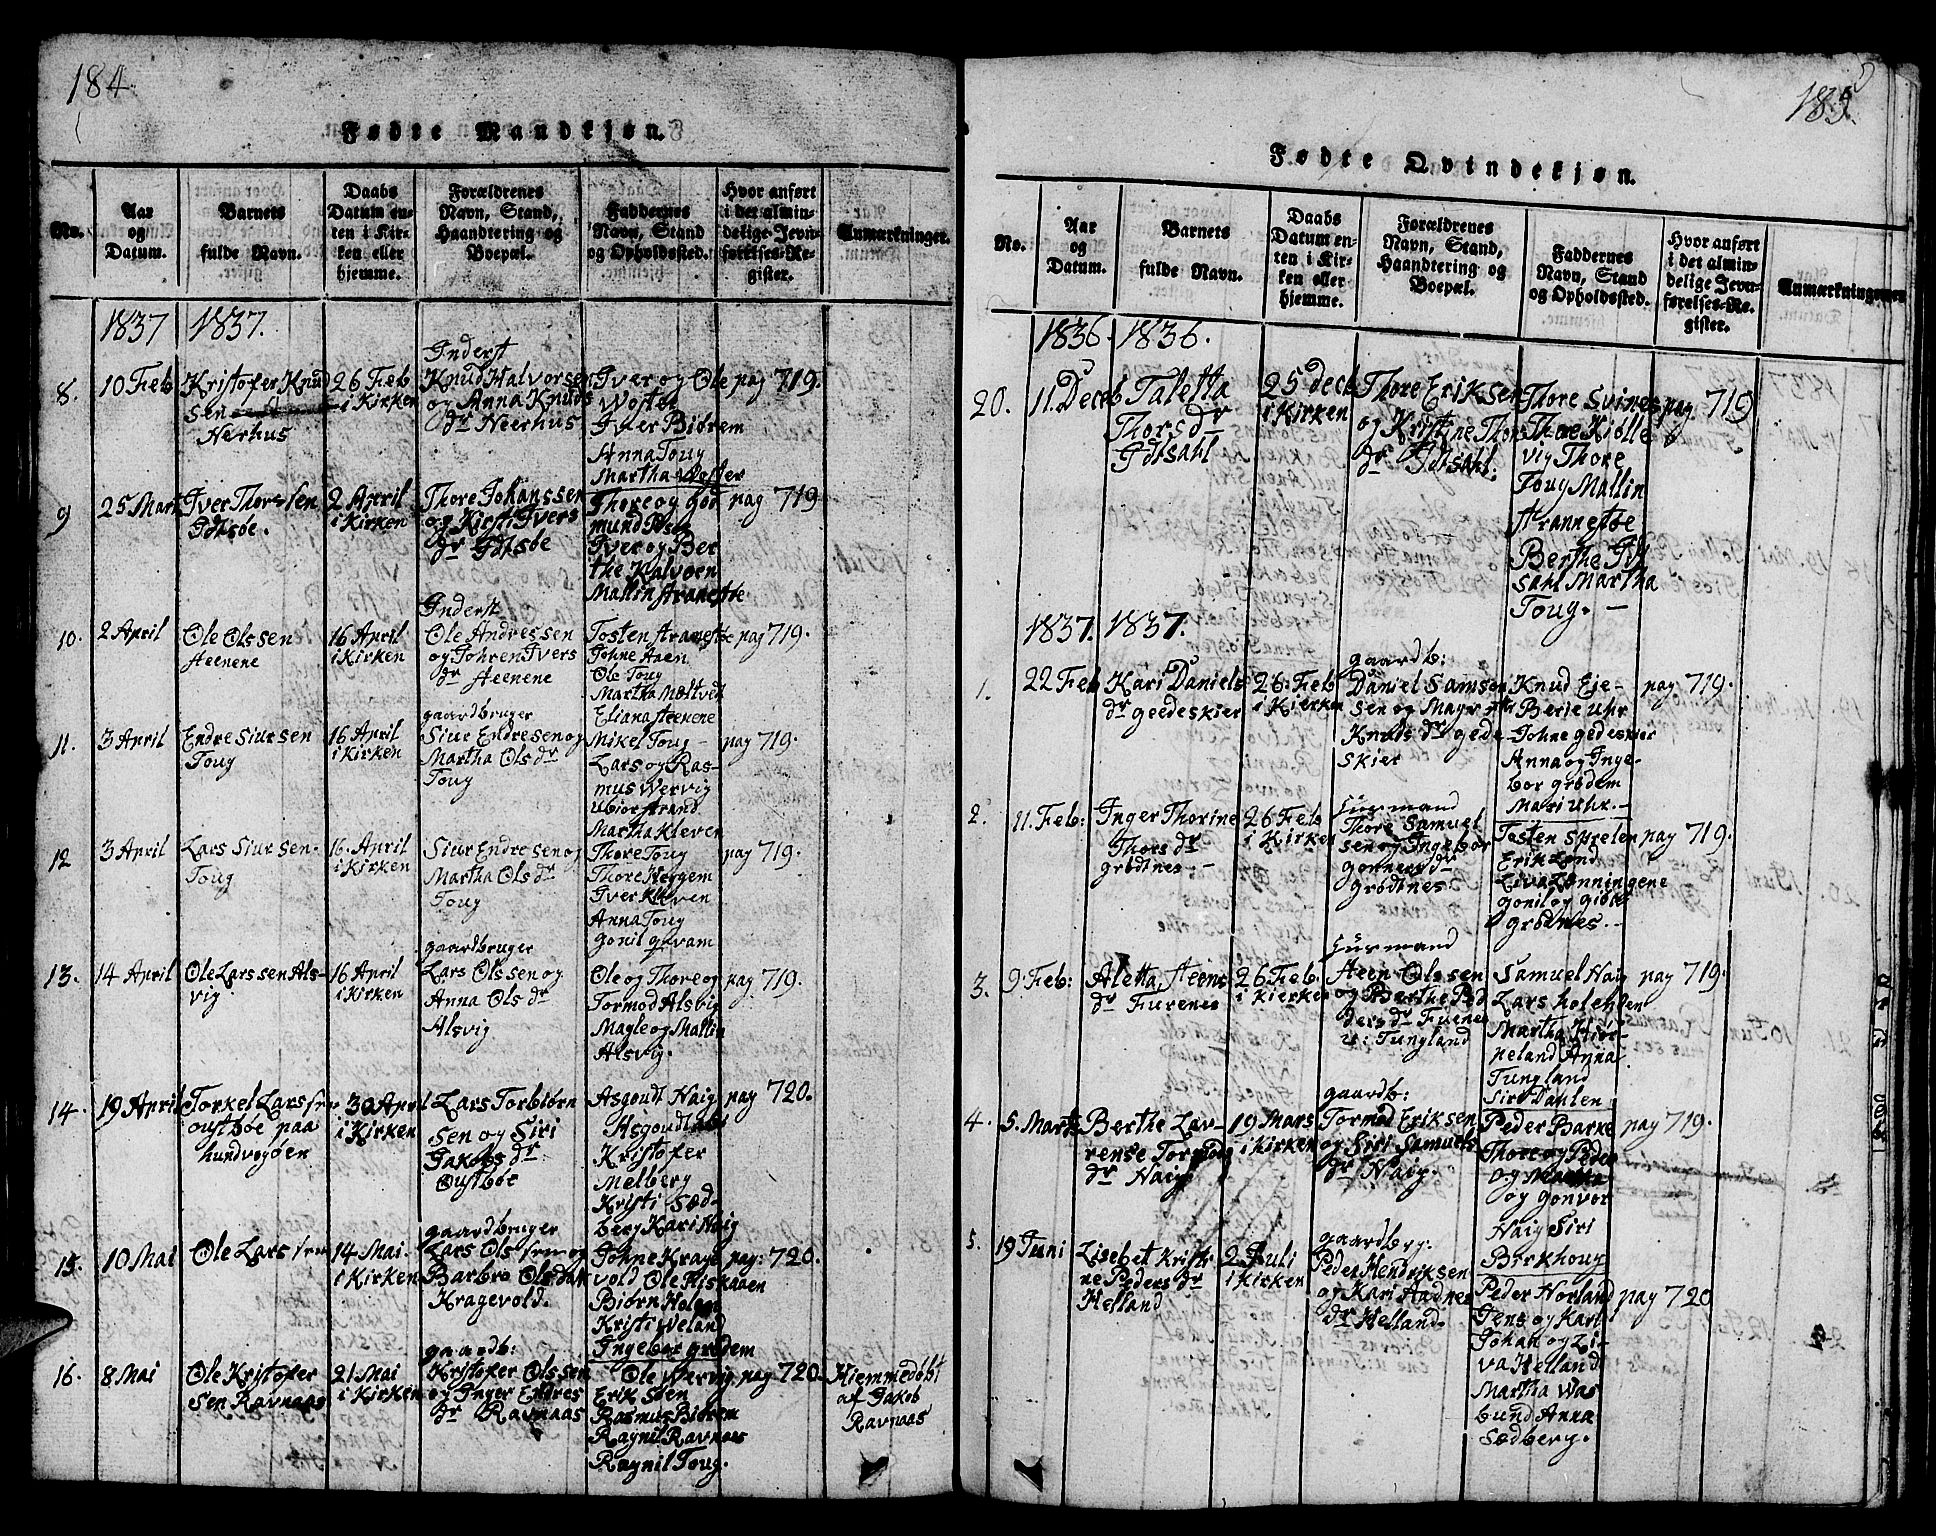 184
Fødte Mandkjøn.
No.
Aar
og
Datum.
Barnets
fulde Navn.
Daabs
Datum en-
ten i Kir-
ken eller
hjemme.
Forældrenes
Navn, Stand,
Haandtering og
Boepæl.
Faddernes
Navn, Stand
og Opholdssted.
Hvor anført
i det almin-
delige Jevn-
førelses-Re-
gister.
Anmærkninger.
1837 1837.
8.
10 Feb
Kristofer Knud
sen
Nerhus
26 Feb
i Kirken
Inderst
Knud Halvorsen
og Anna Knuds
dr Neerhus
Iver og Ole
Woster
Iver Biørem
Anna Toug
Martha Wester
pag 719.
9
25 Mart
Iver Thorssen
Idtsøe.
2 April
i Kirken
Thore Johanssen
og Kirsti Ivers
dr Idtsøe
Thore og Gud
mund Idsøe
Iver og Ber
the Kalvøen
Mallin Strannetøe
pag 719
10.
2 April
Ole Olssen
Steenene
16 April
i Kirken
Inderst
Ole Andressen
og Johren Ivers
dr Steenene
Tosten Stranetøe
Johne Aaen
Ole Toug
Martha Mæltvedt
Eliana Steenene
pag 719.
11.
3 April
Endre Siursen
Toug
16 April
i Kirken
gaardbruger
Siur Endresen og
Martha Ols dr
Toug
Mikel Toug
Lars og Ras-
mus Wervig
Ubior Strand
Martha Kleven
pag 719.
12
3 April
Lars Siursen
Toug
16. April
i Kirken
Siur Endresen og
Martha Ols dr
Toug
Thore Toug
Thore Hergem
Iver Kleven
Anna Toug
Gonil Qvam
pag 719.
13.
14 April
Ole Larssen Als-
vig.
16 April
i Kirken
gaardbruger
Lars Olssen og
Anna Ols dr
Alsvig
Ole og Thore og
Tormod Alsvig
Magle og Mallin
Alsvig.
pag 719.
14.
19 April
Torkel Larssen
oustbøe paa
hundvogøen
30 Apri
i Kirken
Lars Torbiørn
sen og Siri
Jakobs dr
Oustbøe
Asgoudt Haig
Asgoudt
Kristofer
Melberg
Kristi Sæd-
berg Kari Haig
pag 720.
15.
10 Mai
Ole Larssen
14 Mai
i Kirken
gaardbruger
Lars Olssen og
Barbro Olsdatr
Kragevold.
Johne Krage
vold Ole Riskaaen
Biørn
Kristi Weland
Ingebor grødem
pag: 720.
16.
8 Mai
Ole Kristofer
sen Ravnaas
21 Mai
i Kirken
gaardb:
Kristofer Olssen
og Inger Endres
dr Ravnaas
Ole Wervig
Erik Steen
Rasmus Biørem
Ragnil Ravnaas
Ragnil Toug.
pag 720.
Hiemmedøbt
af Jakob
Ravnaas
185.
Fødte Qvindekjøn.
No.
Aar
og
Datum.
Barnets
fulde Navn.
Daabs
Datum en-
ten i Kir-
ken eller
hjemme.
Forældrenes
Navn, Stand,
Haandtering og
Boepæl.
Faddernes
Navn, Stand
og Opholdssted.
Hvor anført
i det almin-
delige Jevn-
førelses-Re-
gister.
Anmærkninger
1836 1836.
20.
11. Decb
Taletta
Thors dr
Idtsahl
25 Decb
i Kirken
Thore Eriksen
og Kristine Thors
dr Idtsahl.
Thore Svines
Thore Kiølle
vig Thore
Toug Mallin
Strannetøe
Berthe Idt
sahl Martha
Toug.
pag 719
1837. 1837.
1.
22 Feb
Kari Daniels
dr geedeskier
26. Feb
i Kierken
gaardb:
Daniel Samsen
sen og Magretha
Knuds dr gede-
skier
Knud Eie-
Berie Uhr
Johne gedeskier
Anna og Inge-
bor grødem
Mari Uhr.
pag. 719.
2.
11. Feb:
Inger Thorine
Thors dr
grødtnes
26 Feb
i Kirken
Huusmand
Thore Samuel
sen og Ingebor
Gonners dr
Grødtnes
Tosten Spreten
Erik Lend
Eiva Lønningene
gonil og
grødtnes
pag 719.
3.
9. Feb:
Aletta Steens
dr Furenes
26 Feb.
i Kierken
Huusmand
Steen Olssen
og Berthe Ped
ders dr Fuenes
u: Tungland
Samuel Haig
Lars
Martha Hiør-
neland Anna
Tungland
Siri Dahlen
pag 719.
4.
5. Marts
Berthe Lav-
rense Tormods
dr Haig
19 Mars
i Kirken
gaardb:
Tormod Eriksen
og Siri Samuels
dr Haig.
Peder Barke
Thore og Peder
og Martha
og Gonvor
Haig Siri
Birkhoug
pag 719.
5.
19 Juni
Lisebet Kristi
ne Peders dr
Helland
2 Juli
i Kirken
gaardbrg:
Peder Hendriksen
og Kari Aadnes
dr Helland.
Peder Norland
Jens og Karl
Johan og Li-
va Helland
Martha Was
bund Anna
Sædberg.
pag 720